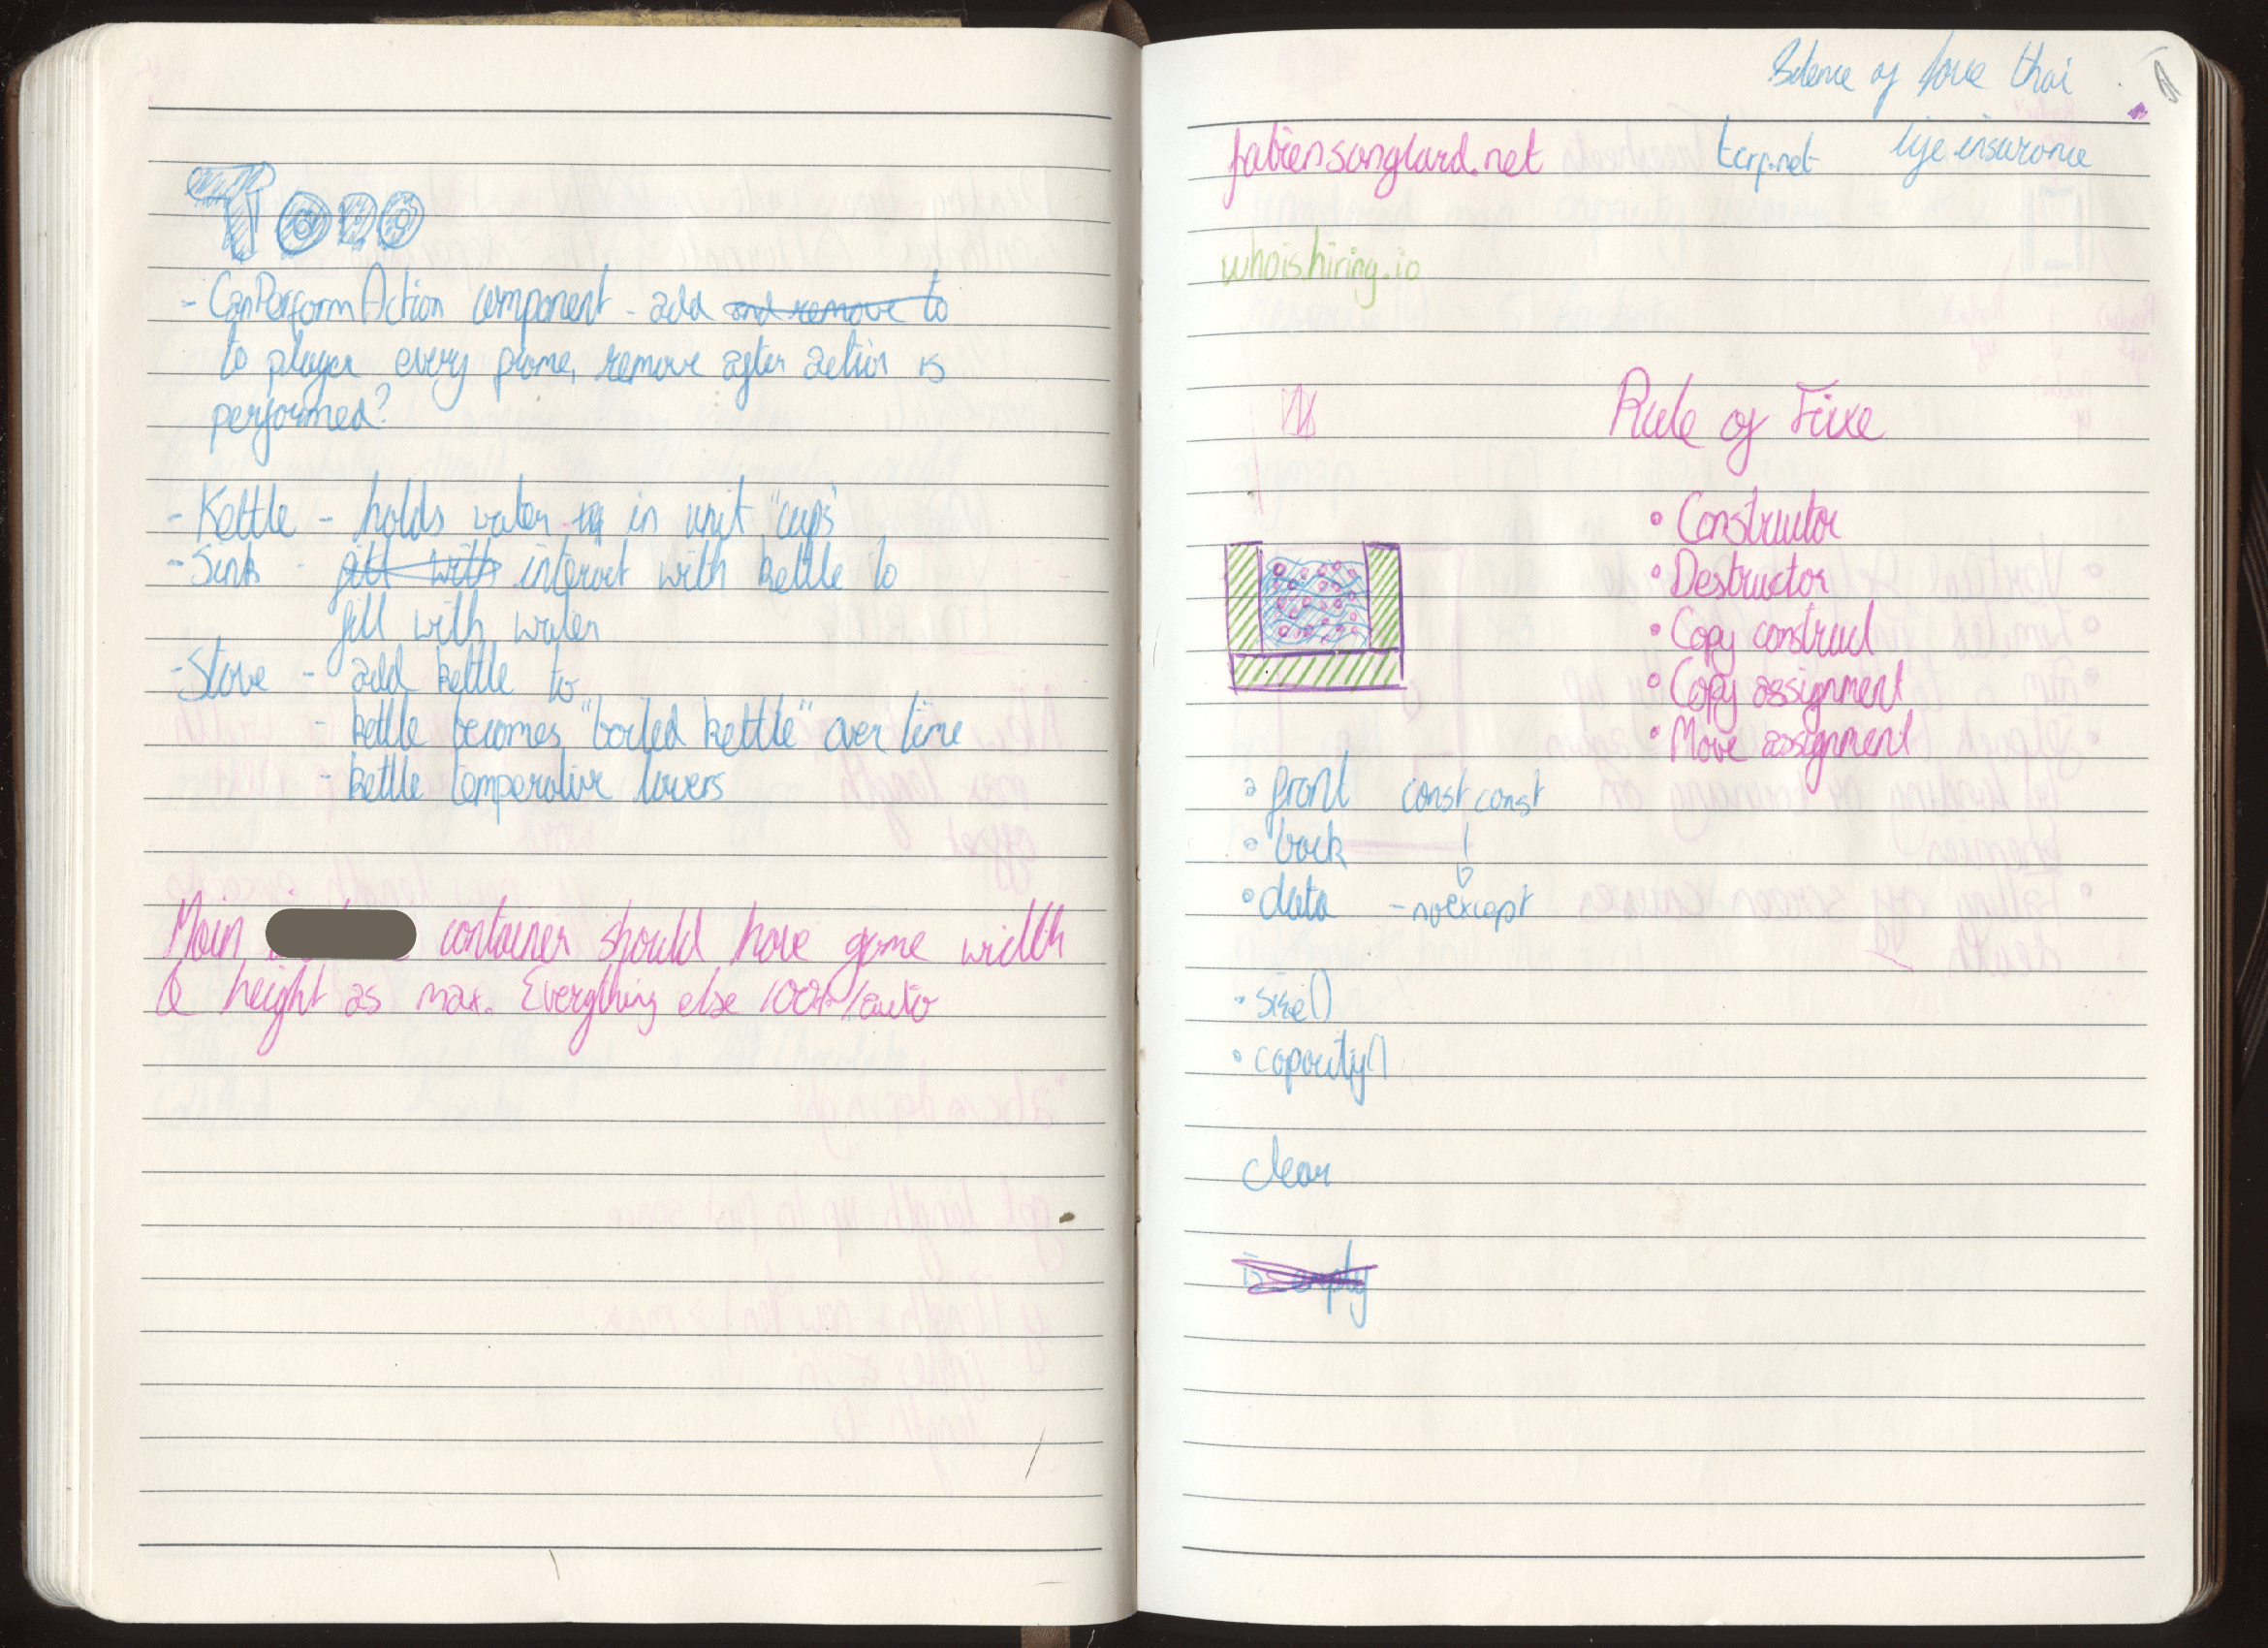 TODO
- CanPerformAction component - add and remove to
to player every frame, remove after action is
performed?
- Kettle - holds water in unit "cups"
- Sink - fill with interact with kettle to
fill with water
- Stove - add kettle to
- kettle becomes "boiled kettle" over time
- kettle temperature lowers
Main container should have game width
& height as max. Everything else 100%/auto
Science of love thai
fabiensanglard.net tcrp.net life insurance
whoishiring.io
Rule of Five
• Constructor
• Destructor
• Copy construct
• Copy assignment
• Move assignment
• front const const
• back
• data - noexcept
• size()
• capacity()
clear
is empty